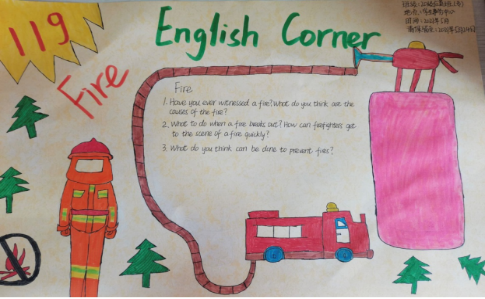 119
English Corner
Fire
Fire
1. Have you ever witnessed a fire? What do you think are the
causes of the fire?
2. What to do when a fire breaks out? How can firefighters get
to the scene of a fire quickly?
3. What do you think can be done to prevent fires?